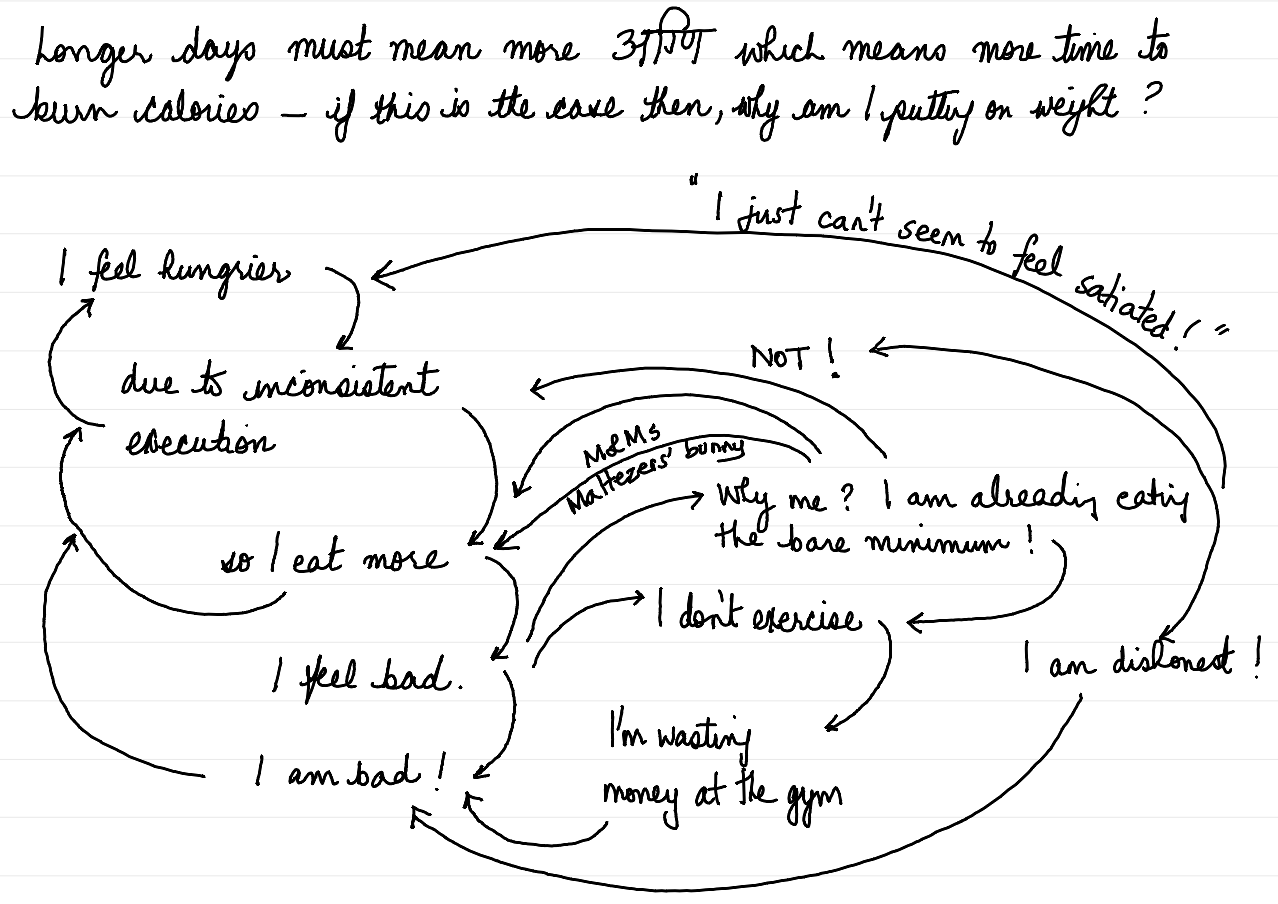 Longer days must mean more which means more time to
burn calories – if this is the case then, why am I putting on weight ?
"I just can't seem to feel satiated! "
I feel hungrier
NOT !
due to inconsistent
execution
M&Ms
Maltezers' bunny
Why me ? I am already eating
the bare minimum !
so I eat more
I don't exercise
I am dishonest !
I feel bad.
I'm wasting
money at the gym
I am bad !